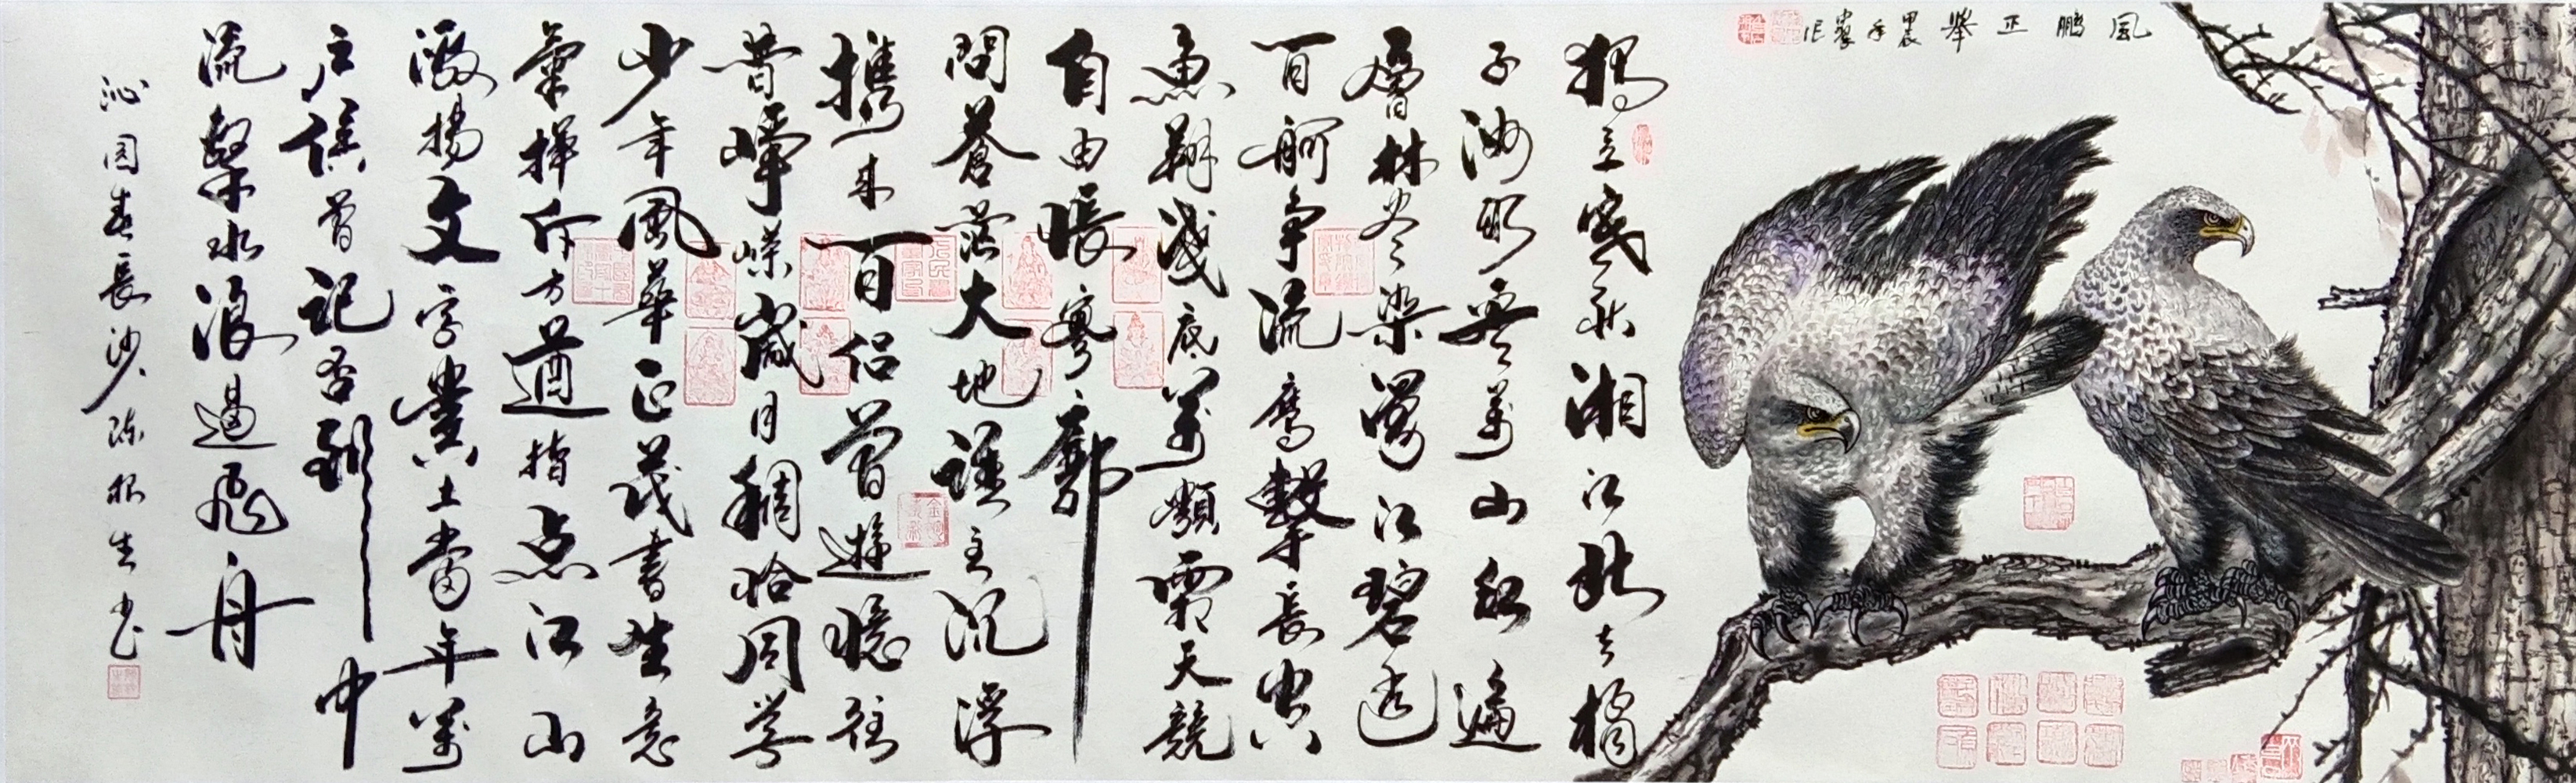 風鵬正舉 甲辰年
獨立寒秋湘江北去橘
子洲頭看萬山紅遍
層林尽染漫江碧透
百舸争流鷹擊長空
魚翔淺底萬類霜天競
自由悵寥廓
問蒼茫大地誰主沉浮
携來百侣曾遊憶往
昔崢嶸歲月稠恰同学
少年風華正茂書生意
氣揮斥方遒指点江山
激揚文字糞土當年萬
户侯曾記否到中
流擊水浪遏飛舟
沁园春長沙 陈根生书